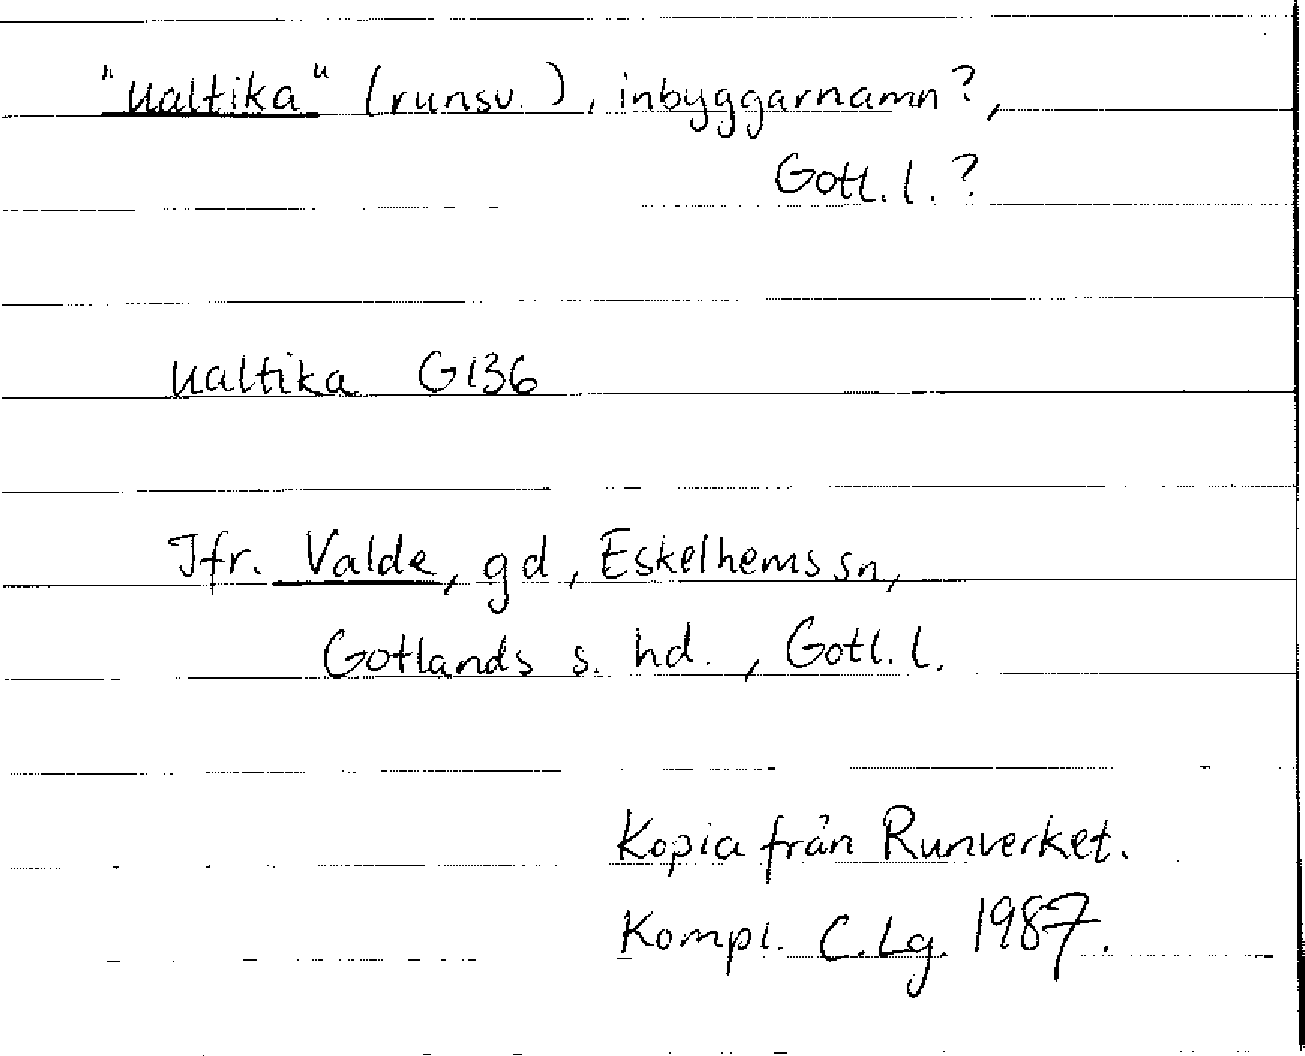 "ualtika" (runsv.), inbyggarnamn?,
Gotl. l.?
ualtika G136
Jfr. Valde, gd, Eskelhems sn,
Gotlands s. hd., Gotl. l.
Kopia från Runverket.
Kompl. C.Lg. 1987.